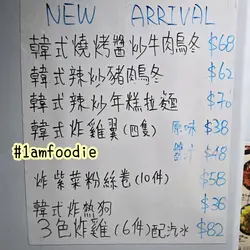 NEW ARRIVAL
韓式燒烤醬炒牛肉烏冬 $68
韓式辣炒豬肉烏冬 $62
韓式辣炒年糕拉麵 $70
韓式炸雞翼(四隻) 原味 $38
#1amfoodie
醬汁 $48
炸紫菜粉絲卷(10件) $58
韓式炸熱狗 $36
3色炸雞(6件)配汽水 $82